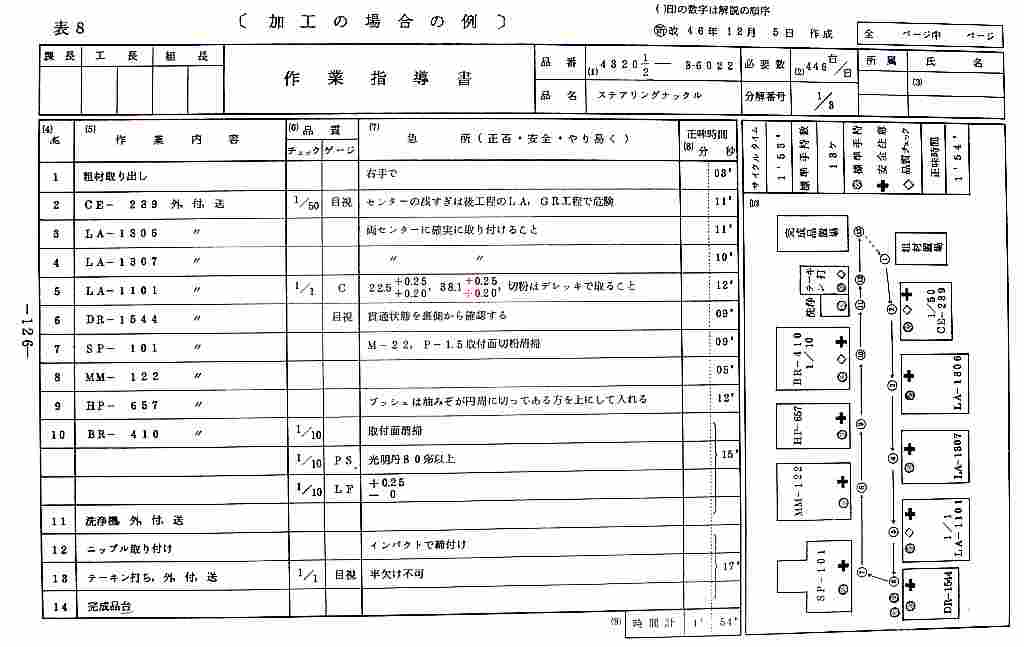 表8 〔 加工の場合の例 〕
( )日の数字は解説の順序
改 46年12月 5日 作成
全 ページ中 ページ
課長 工長 組長
作業指導書
品番 (1) 4320 1/2 ― 3-6022 必要数 (2) 446台/日 所属 氏名
(3)
品名 ステアリングナックル 分解番号 1/3
(4) № (5) 作業内容 (6) 品質 (7) 急所(正否・安全・やり易く) 正味時間
チェック ゲージ (8) 分 秒
1 粗材取り出し 右手で 03"
2 CE- 239 外,付,送 1/50 目視 センターの浅すぎは後工程のLA,GR工程で危険 11"
3 LA-1306 〃 両センターに確実に取り付けること 11"
4 LA-1307 〃 〃 〃 10"
5 LA-1101 〃 1/1 C 22.5 +0.25 +0.20, 38.1 +0.25 +0.20, 切粉はデレッキで取ること 12"
6 DR-1544 〃 目視 貫通状態を裏側から確認する 09"
7 SP- 101 〃 M-22, P-1.5取付面切粉清掃 09"
8 MM- 122 〃 05"
9 HP- 657 〃 ブッシュは油みぞが円周に切ってある方を上にして入れる 12"
10 BR- 410 〃 1/10 取付面清掃
1/10 PS 光明丹80%以上 15"
1/10 LF +0.25 - 0
11 洗浄機,外,付,送
12 ニップル取り付け インパクトで締付け
13 テーキン打ち,外,付,送 1/1 目視 半欠け不可 17"
14 完成品台
(9) 時間計 1' 54"
サイクルタイム 1'55"
標準手持数 13ヶ
標準手持
安全注意
品質チェック
正味時間 1'54"
(10)
完成品置場
粗材置場
テーキン打
洗浄
1/50 CE-239
BR-410 1/10
LA-1306
HP-657
LA-1307
MM-122
1/1 LA-1101
SP-101
DR-1544
―126―